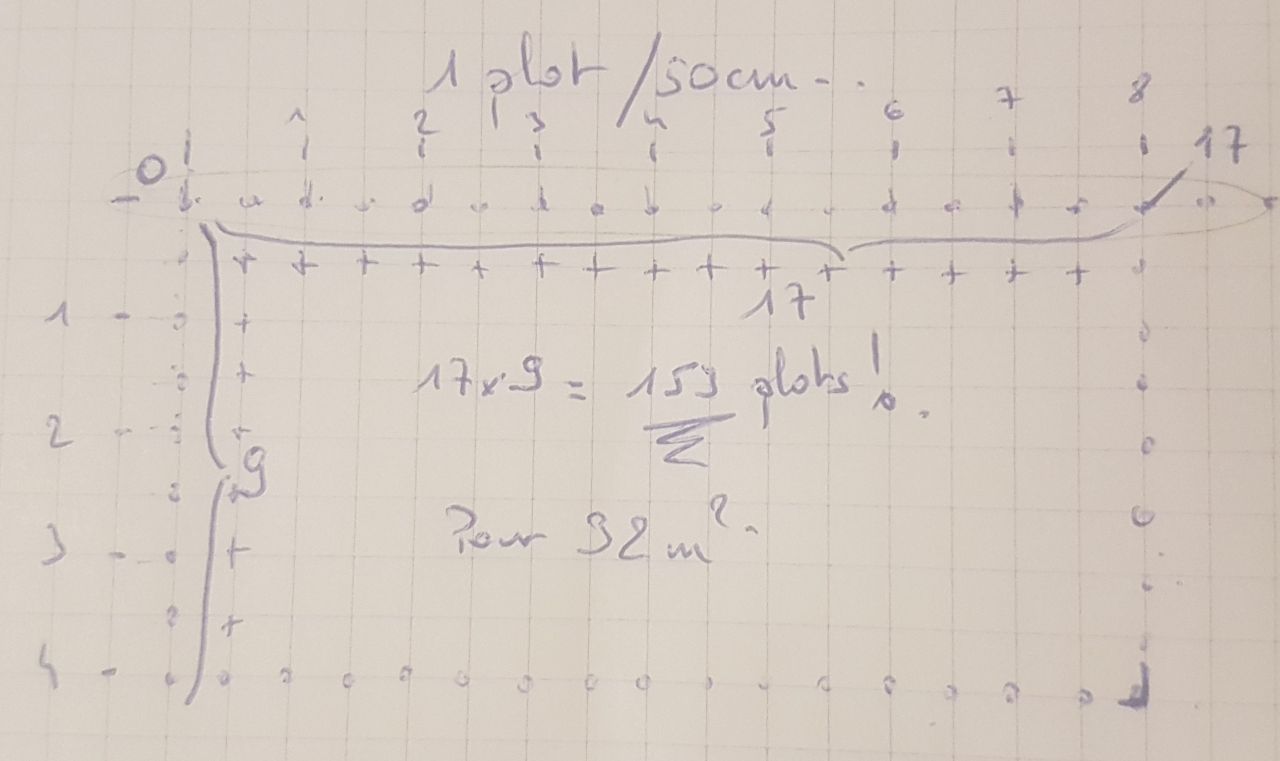 1 plot /50cm...
0 1 2 3 4 5 6 7 8
17
1
17
17 x 9 = 153 plots !
2
9
Pour 32 m².
3
4